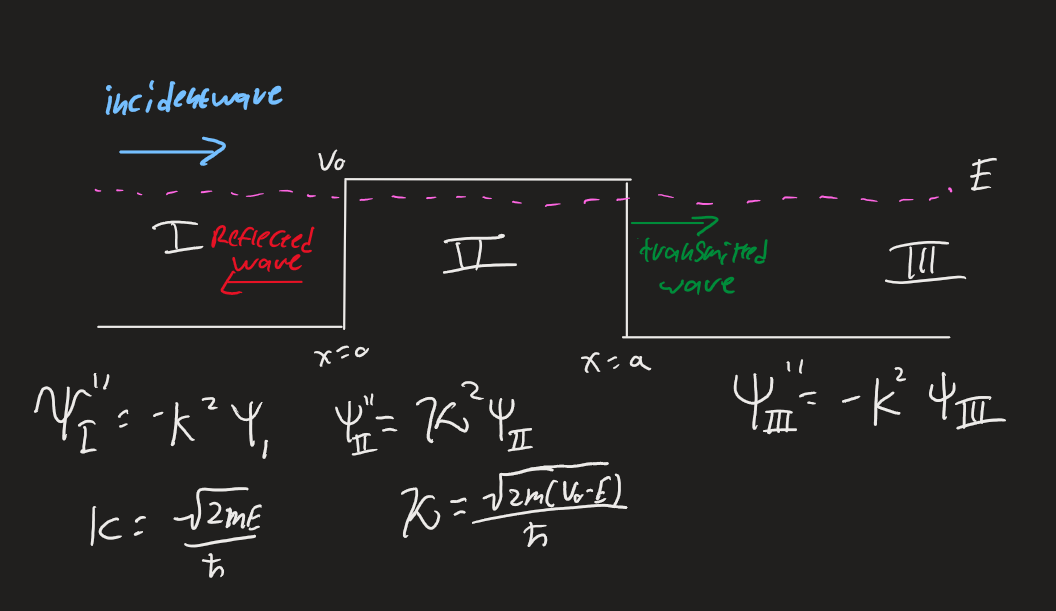 incident wave
V₀
E
I
Reflected
wave
II
transmitted
wave
III
x=0
x=a
ψ_I'' = -k² ψ₁
ψ_II'' = κ² ψ_II
ψ_III'' = -k² ψ_III
k = √(2mE)/ℏ
κ = √(2m(V₀-E))/ℏ